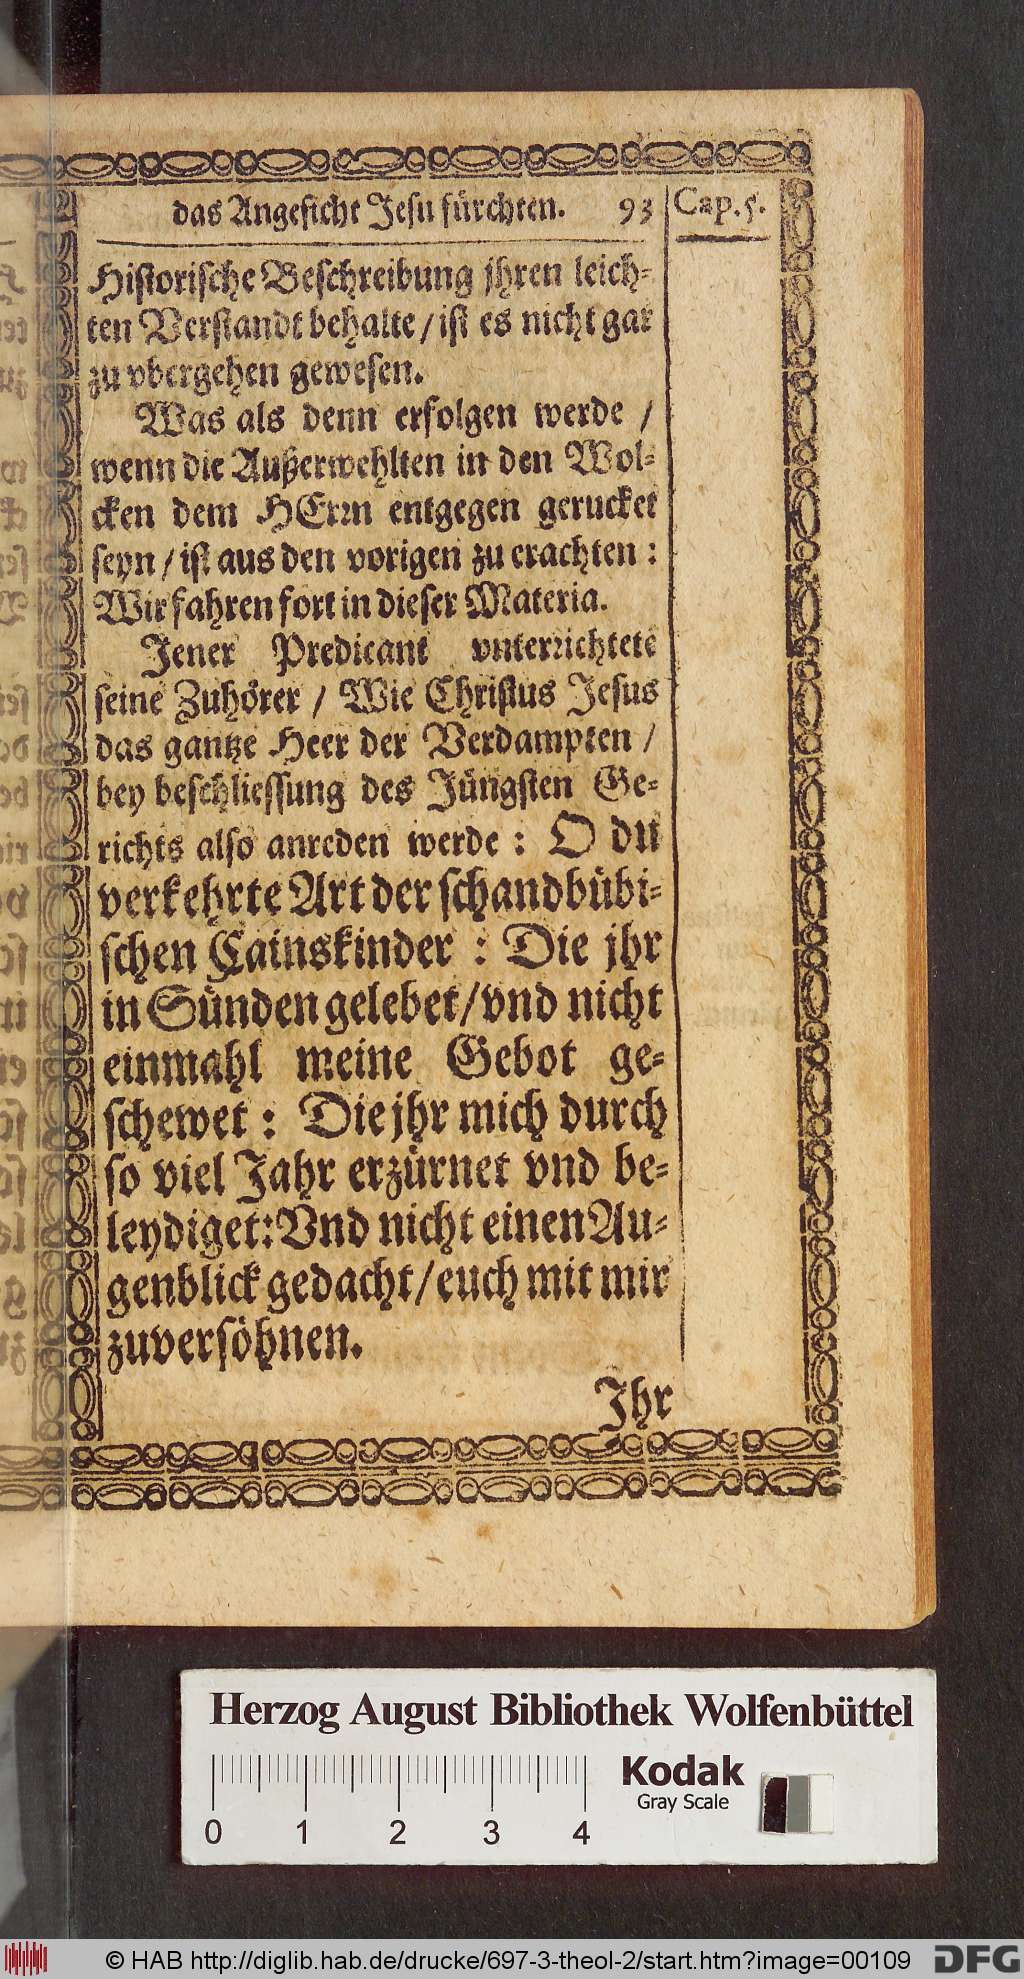 das Angesicht Jesu fürchten. 93
Cap. 5.
Historische Beschreibung jhren leich-
ten Verstandt behalte / ist es nicht gar
zu vbergehen gewesen.
Was als denn erfolgen werde /
wenn die Außerwehlten in den Wol-
cken dem HErrn entgegen gerucket
seyn / ist aus den vorigen zu erachten :
Wir fahren fort in dieser Materia.
Jener Predicant vnterrichtete
seine Zuhörer / Wie Christus Jesus
das gantze Heer der Verdampten /
bey beschliessung des Jüngsten Ge-
richts also anreden werde : O du
verkehrte Art der schandbübi-
schen Cainskinder : Die jhr
in Sünden gelebet / vnd nicht
einmahl meine Gebot ge-
schewet : Die jhr mich durch
so viel Jahr erzürnet vnd be-
leydiget: Vnd nicht einen Au-
genblick gedacht / euch mit mir
zuversöhnen.
Jhr
Herzog August Bibliothek Wolfenbüttel
Kodak
Gray Scale
0 1 2 3 4
© HAB http://diglib.hab.de/drucke/697-3-theol-2/start.htm?image=00109
DFG